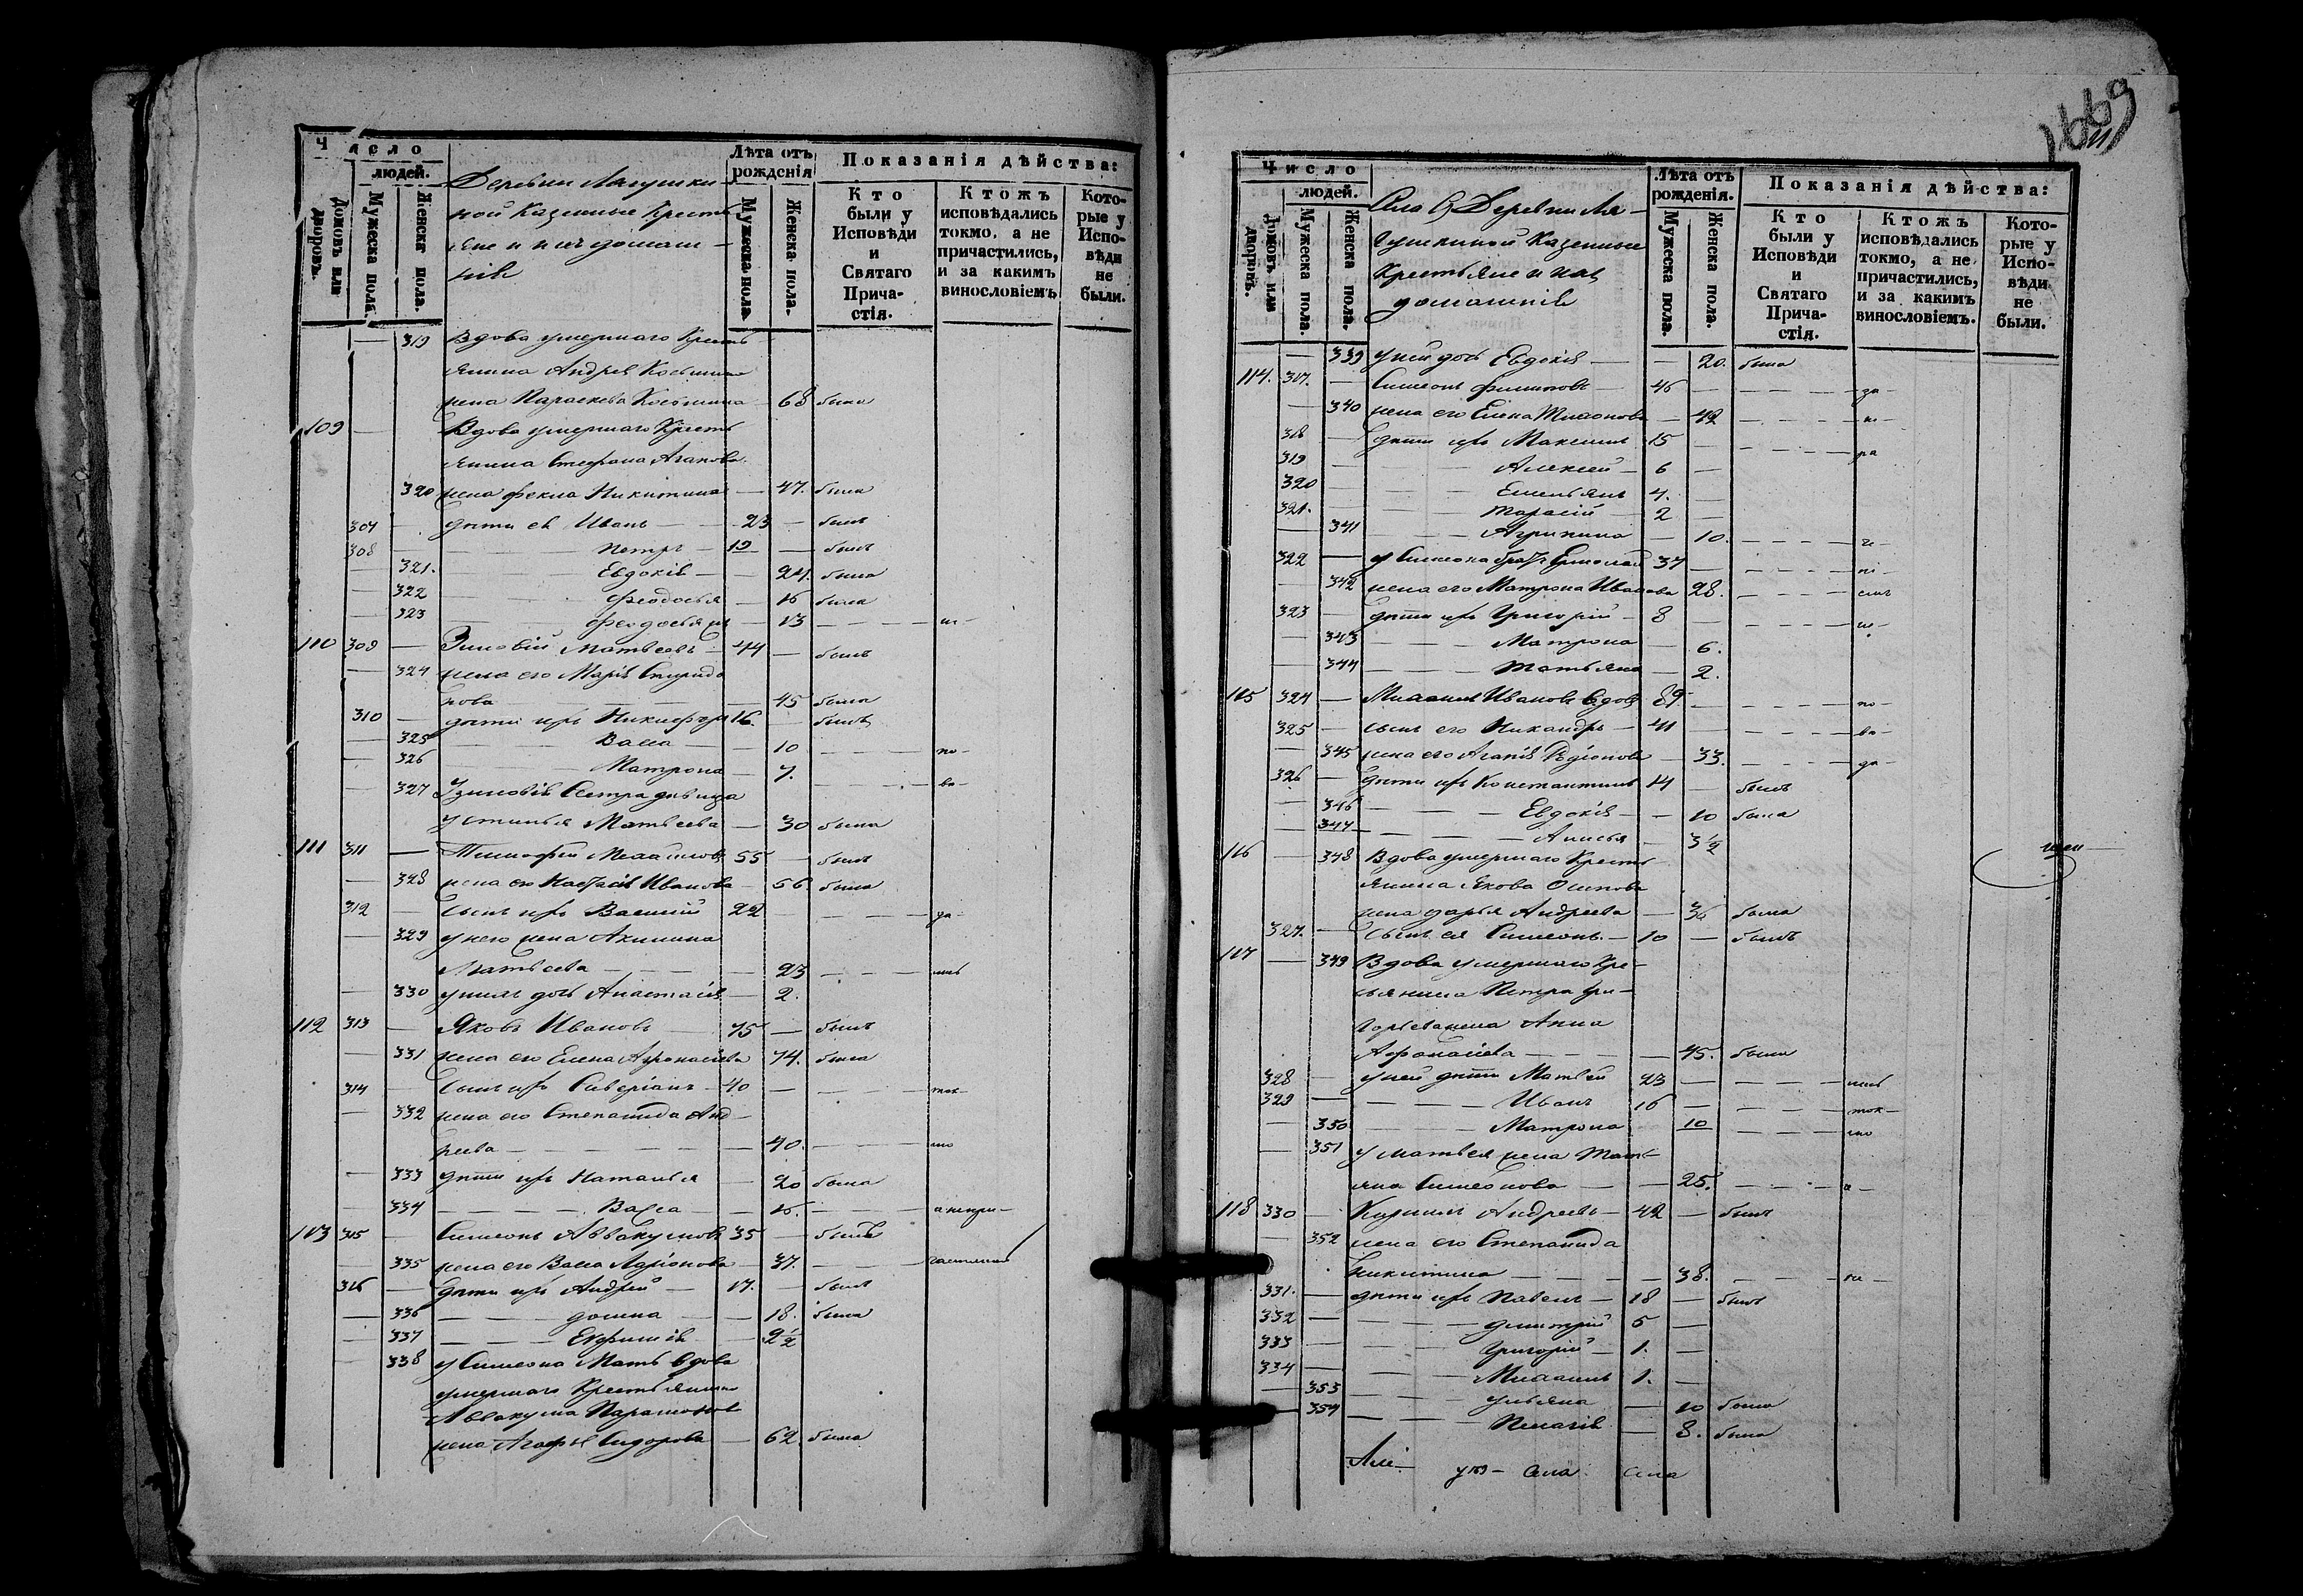 Число
людей.
Домовъ или дворовъ.
Мужеска пола.
Женска пола.
Деревни Лягушки-
ной Казенные Кресть
яне и ихъ домаш-
ніе
Лѣта отъ рожденія
Мужеска пола.
Женска пола.
Показанія дѣйства:
Кто были у Исповѣди и Святаго Прича-стія.
Ктожъ исповѣдались токмо, а не причастились, и за какимъ винословіемъ
Кото-рые у Испо-вѣди не были.
— 319 Вдова умершаго Кресть
янина Андрея Косьмина
жена Параскева Косьмина — 68 была
109 — Вдова умершаго Кресть
янина Стефана Агапова
320 жена Фекла Никитина — 47. была
307 — дѣти ея Иванъ — 23 — былъ
308 — Петръ — 19 — былъ
— 321. Евдокія — 24. была
— 322 Феодосья — 16 была
— 323 — 13
110 309 — Зиновій Матвеевъ — 44 — былъ
— 324 жена его Марія Спиридо
нова — 45 была
310 — дѣти ихъ Никифоръ 16. — былъ
— 325 Васса — 10 — по-
— 326 Матрона — 7.
— 327 У Зиновія Сестра девица — ва-
Устинья Матвеева — 30 была
111 311 — Тимофей Михайловъ 55 — былъ
— 328 жена его Настасія Иванова — 56 была
312 — сынъ ихъ Василій 22 — да-
— 329 у него жена Акилина
Матвеева — 23 — лись
— 330 у нихъ дочь Анастасія — 2.
112 313 — Яковъ Ивановъ — 75 — былъ
— 331 жена его Елена Афонасіева 74. была
314 — сынъ ихъ Северіанъ — 40 — ток-
— 332 жена его Степанида Анд-
реева — 40. — мо
— 333 дѣти ихъ Наталья — 20 была
— 334 Васса — 16. — а непри-
113 315 — Симеонъ Аввакумовъ 35 — былъ
— 335 жена его Васса Ларіонова — 37. — частились
316 — дѣти ихъ Андрей — 17. — былъ
— 336 Домна — 18. была
— 337 — 2 1/2
— 338 у Симеона Мать вдова
умершаго Крестьянина
Аввакума Парамонова
жена Агафья Сидорова — 62 была
1669
Число
людей.
Домовъ или дворовъ.
Мужеска пола.
Женска пола.
Села и Деревни Ля-
гушкиной Казенные
Крестьяне и ихъ
домашніе
Лѣта отъ рожденія.
Мужеска пола.
Женска пола.
Показанія дѣйства:
Кто были у Исповѣди и Святаго Прича-стія.
Ктожъ исповѣдались токмо, а не причастились, и за какимъ винословіемъ.
Кото-рые у Испо-вѣди не были.
— 339 у ней дочь Евдокія — 20. была
114. 317. — Симеонъ Филиповъ — 46 — за-
— 340 жена его Елена Тихонова — 42
318 — дѣти ихъ Максимъ 15 — ра
319 — Алексей — 6 —
320 — Емельянъ 4. —
321. — Тарасій — 2 —
— 341 Агрипина — 10.
322 — у Симеона братъ Ермолай 37 —
— 342 жена его Матрона Иванова 28.
323 — дѣти ихъ Григорій — 8
— 343 Матрона — 6.
— 344 Татьяна — 2.
115 324 — Михаилъ Ивановъ вдовъ — по-
325 — сынъ его Никандръ — 41 — ве-
— 345 жена его Агапія Родіонова — 33. — да-
326 — дѣти ихъ Константинъ 14 — былъ
— 346 Евдокія — 10 была
— 347 Анисья — 3 1/2
116 — 348 Вдова умершаго Кресть
янина Якова Осипова
жена Дарья Андреева — 36 была
327. — сынъ ея Симеонъ — 10 — былъ
117 — 349 Вдова умершаго Кре-
стьянина Петра Гри-
горьева жена Анна
Афонасіева — 45. была
328 — у ней дѣти Матвей 23 — лись
329 — Иванъ 16 — ток-
— 350 Матрона 10 — мо
— 351 у Матвея жена Тать-
яна Симеонова — 25. — а-
118 330 — Кирилъ Андреевъ — 42 — былъ
— 352 жена его Степанида
Никитина — 38.
331. — дѣти ихъ Павелъ — 18 — былъ
332 — Димитрій 5 —
333 — Григорій — 1. —
334 — Михаилъ 1. —
— 353 Ульяна — 10 была
— 354 Пелагія — 8. была